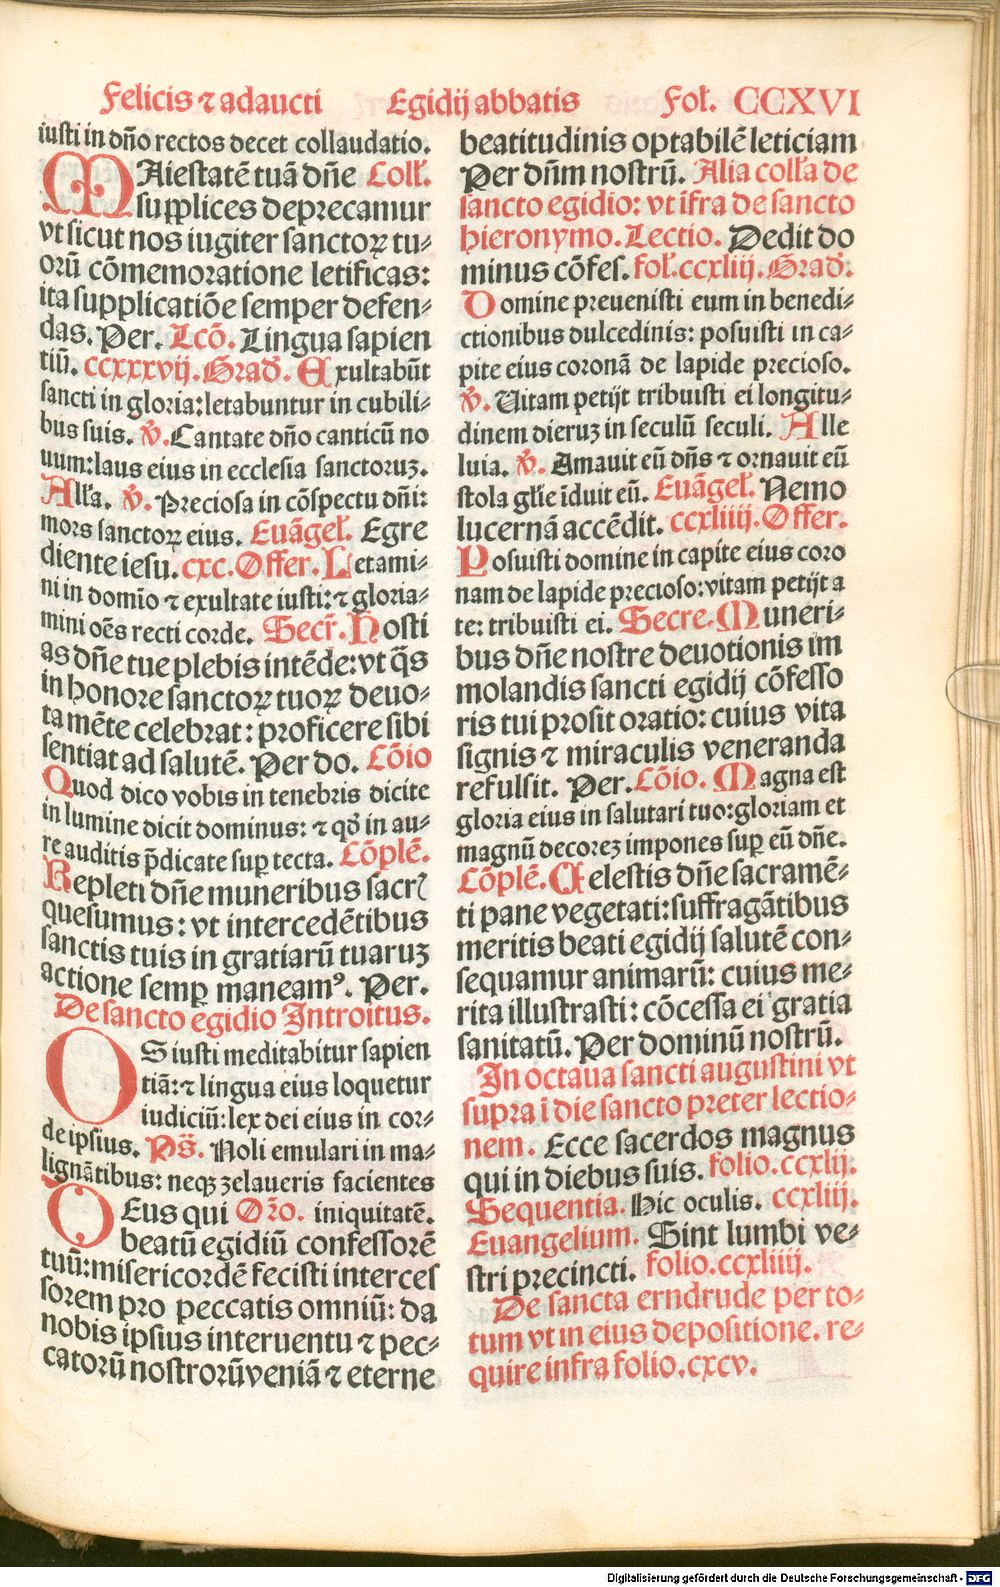 Felicis ⁊ adaucti Egidij abbatis Fol. CCXVI
iusti in dño rectos decet collaudatio.
MAiestatē tuā dñe Coll̃.
supplices deprecamur
vt sicut nos iugiter sanctoꝝ tu⸗
orū cōmemoratione letificas:
ita supplicatiōe semper defen⸗
das. Per. Lcō. Lingua sapien
tiū. ccxxxvij. Grad. Exultabūt
sancti in gloria: letabuntur in cubili⸗
bus suis. ꝟ. Cantate dño canticū no
uum: laus eius in ecclesia sanctoruꝫ.
Alła. ꝟ. Preciosa in cōspectu dñi:
mors sanctoꝝ eius. Euāgeł. Egre
diente iesu. cxc. Offer. Letami⸗
ni in domīo ⁊ exultate iusti: ⁊ gloria⸗
mini oēs recti corde. Secr̃. Hosti
as dñe tue plebis intēde: vt q̄s
in honore sanctoꝝ tuoꝝ deuo⸗
ta mēte celebrat: proficere sibi
sentiat ad salutē. Per do. Cōio
Quod dico vobis in tenebris dicite
in lumine dicit dominus: ⁊ qď in au⸗
re auditis p̄dicate suꝑ tecta. Cōplē.
Repleti dñe muneribus sacr̃
quesumus: vt intercedētibus
sanctis tuis in gratiarū tuaruꝫ
actione semꝑ maneamꝰ. Per.
De sancto egidio Introitus.
OS iusti meditabitur sapien
tiā: ⁊ lingua eius loquetur
iudiciū: lex dei eius in cor⸗
de ipsius. Ps̄. Noli emulari in ma⸗
lignātibus: neqꝫ zelaueris facientes
DEus qui Or̃o. iniquitatē.
beatū egidiū confessorē
tuū: misericordē fecisti interces
sorem pro peccatis omniū: da
nobis ipsius interuentu ⁊ pec⸗
catorū nostrorū veniā ⁊ eterne
beatitudinis optabilē leticiam
Per dn̄m nostrū. Alia colła de
sancto egidio: vt īfra de sancto
hieronymo. Lectio. Dedit do
minus cōfes. fol. ccxliij. Grad.
Domine preuenisti eum in benedi⸗
ctionibus dulcedinis: posuisti in ca⸗
pite eius coronā de lapide precioso.
ꝟ. Uitam petijt tribuisti ei longitu⸗
dinem dieruꝫ in seculū seculi. Alle
luia. ꝟ. Amauit eū dñs ⁊ ornauit eū
stola głie īduit eū. Euāgeł. Nemo
lucernā accēdit. ccxliiij. Offer.
Posuisti domine in capite eius coro
nam de lapide precioso: vitam petijt a
te: tribuisti ei. Secre. Muneri⸗
bus dñe nostre deuotionis im
molandis sancti egidij cōfesso
ris tui prosit oratio: cuius vita
signis ⁊ miraculis veneranda
refulsit. Per. Cōio. Magna est
gloria eius in salutari tuo: gloriam et
magnū decoreꝫ impones suꝑ eū dñe.
Cōplē. Celestis dñe sacramē⸗
ti pane vegetati: suffragātibus
meritis beati egidij salutē con⸗
sequamur animarū: cuius me⸗
rita illustrasti: cōcessa ei gratia
sanitatū. Per dominū nostrū.
In octaua sancti augustini vt
supra ī die sancto preter lectio⸗
nem. Ecce sacerdos magnus
qui in diebus suis. folio. ccxlij.
Sequentia. Hic oculis. ccxliij.
Euangelium. Sint lumbi ve⸗
stri precincti. folio. ccxliiij.
De sancta erndrude per to⸗
tum vt in eius depositione. re⸗
quire infra folio. cxcv.
Digitalisierung gefördert durch die Deutsche Forschungsgemeinschaft - DFG